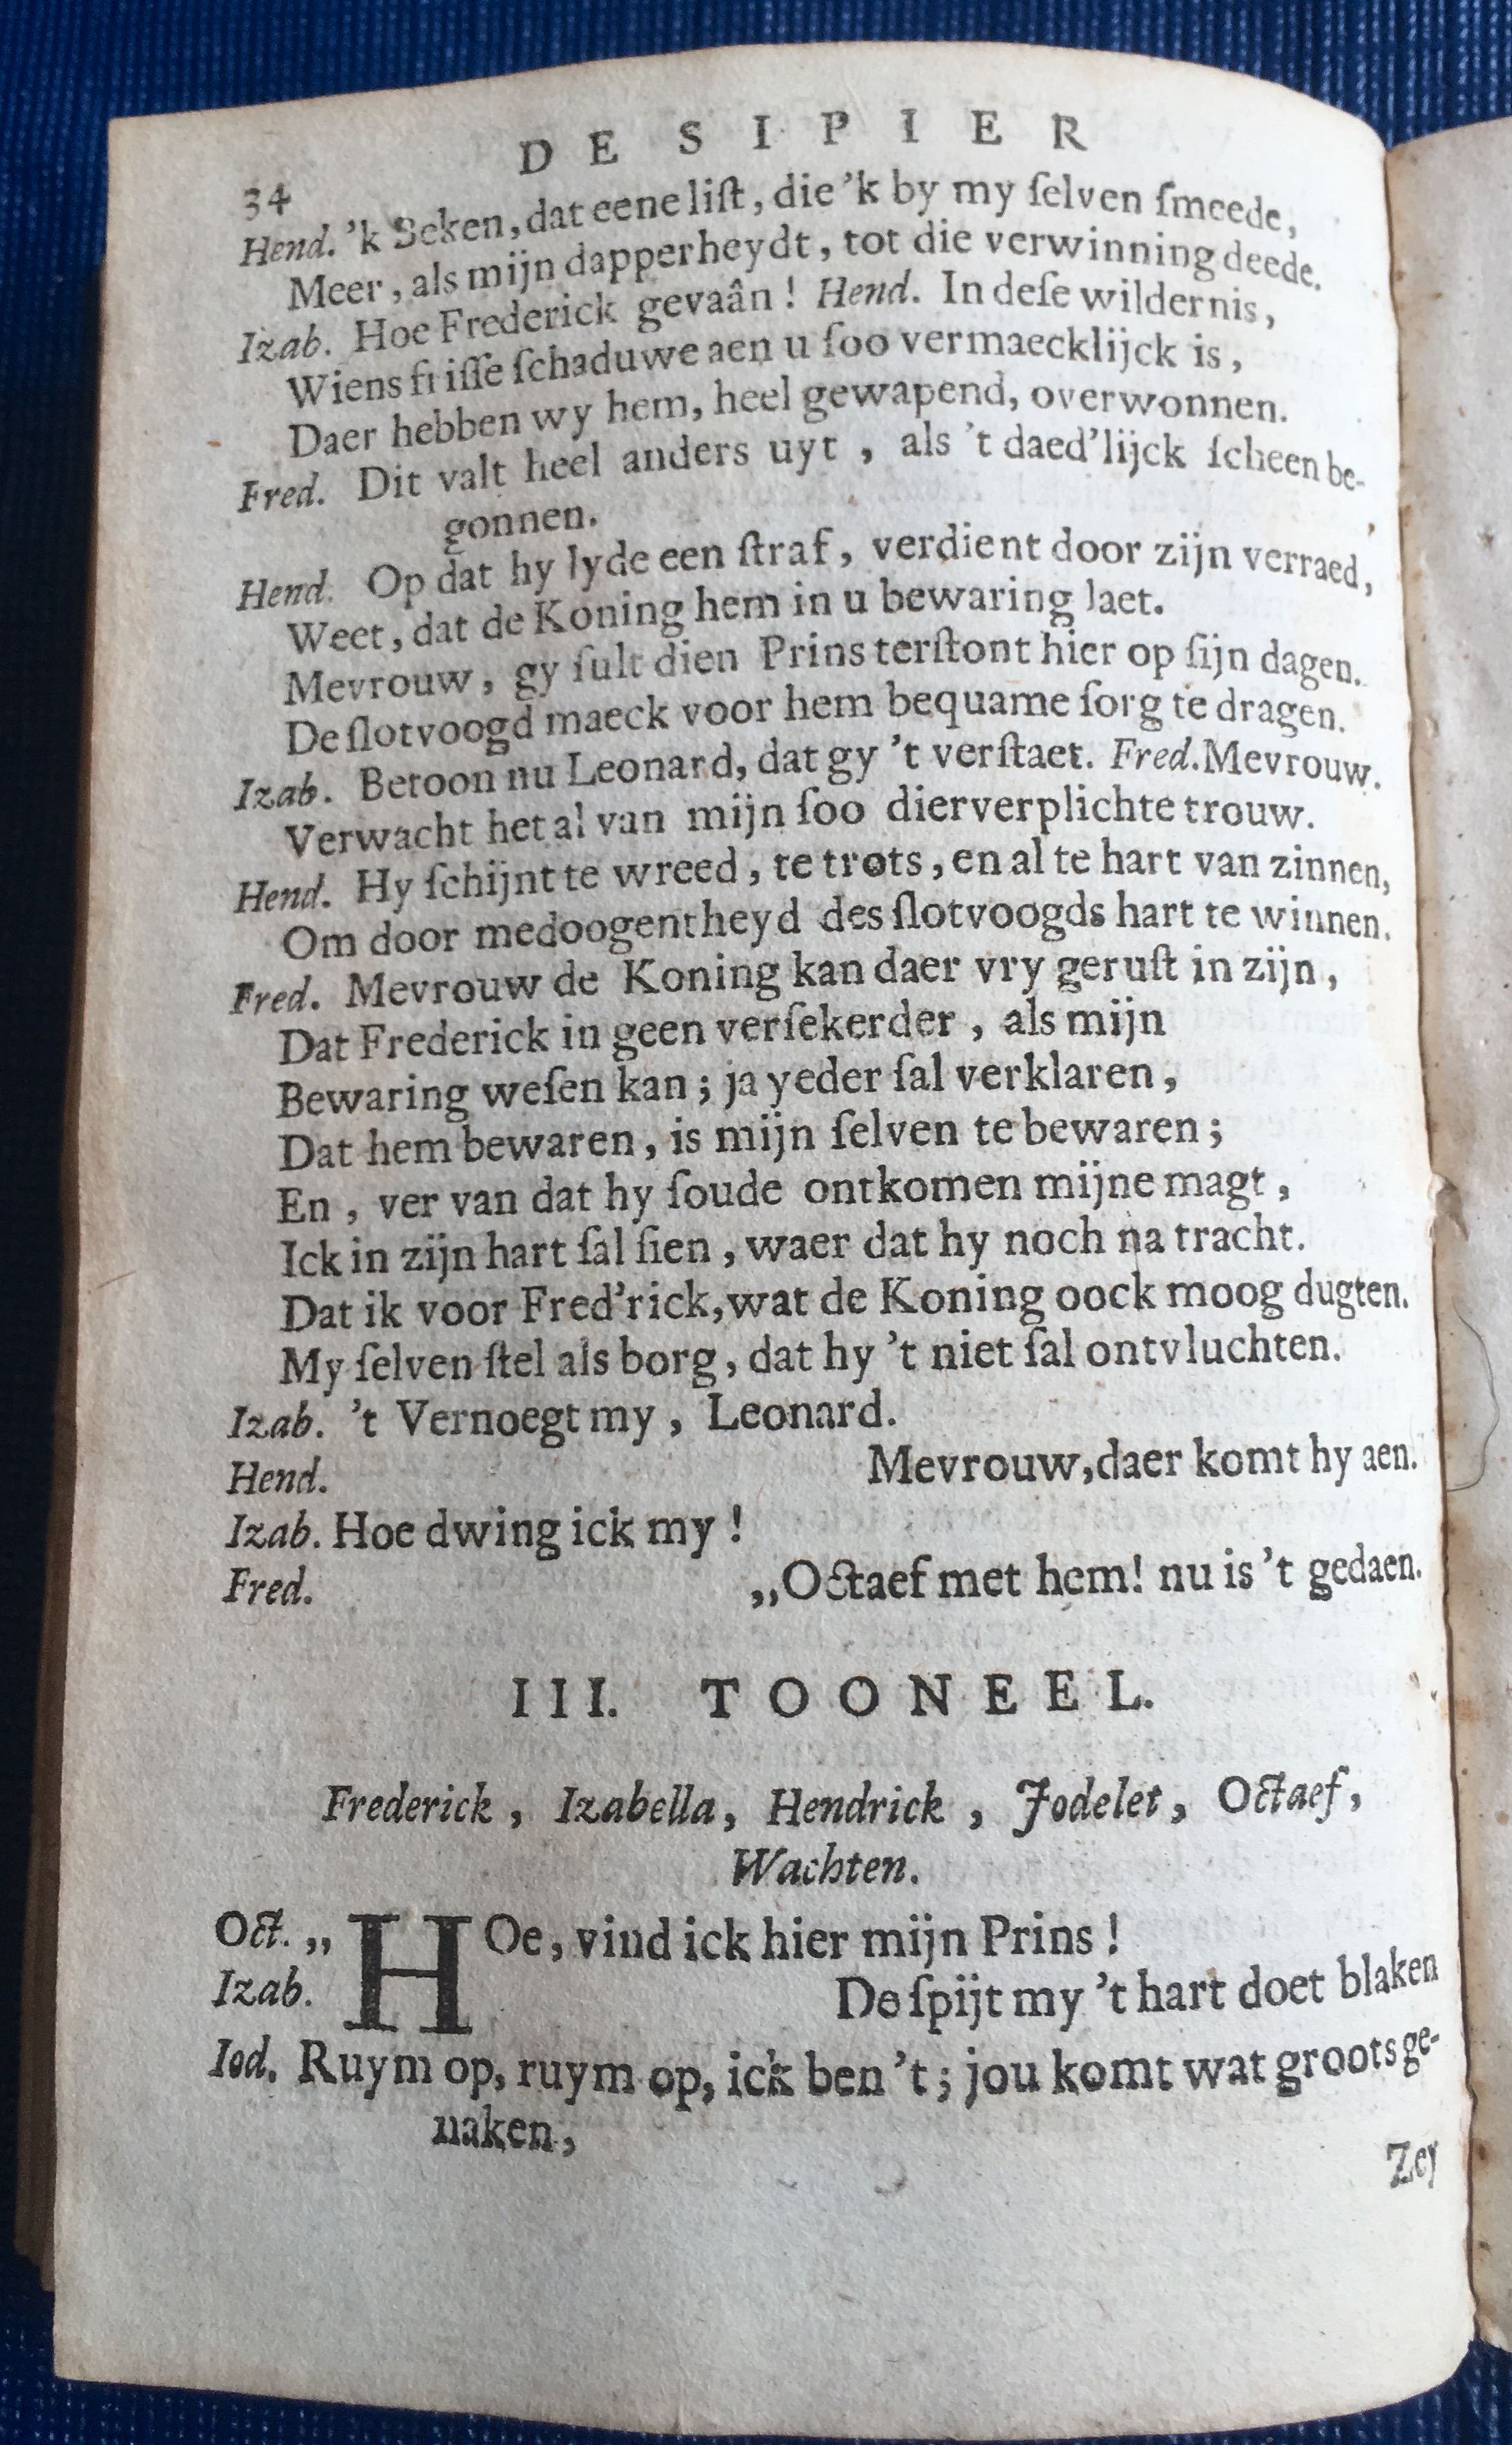 DE SIPIER
34
Hend. 'k Beken, dat eene liſt, die 'k by my ſelven ſmeede,
Meer, als mijn dapperheydt, tot die verwinning deede.
Izab. Hoe Frederick gevaân! Hend. In deſe wildernis,
Wiens friſſe ſchaduwe aen u ſoo vermaecklijck is,
Daer hebben wy hem, heel gewapend, overwonnen.
Fred. Dit valt heel anders uyt, als 't daed'lijck ſcheen be-
gonnen.
Hend. Op dat hy lyde een ſtraf, verdient door zijn verraed,
Weet, dat de Koning hem in u bewaring laet.
Mevrouw, gy ſult dien Prins terſtont hier op ſijn dagen.
De ſlotvoogd maeck voor hem bequame ſorg te dragen.
Izab. Betoon nu Leonard, dat gy 't verſtaet. Fred. Mevrouw.
Verwacht het al van mijn ſoo dierverplichte trouw.
Hend. Hy ſchijnt te wreed, te trots, en al te hart van zinnen,
Om door medoogentheyd des ſlotvoogds hart te winnen.
Fred. Mevrouw de Koning kan daer vry geruſt in zijn,
Dat Frederick in geen verſekerder, als mijn
Bewaring weſen kan; ja yeder ſal verklaren,
Dat hem bewaren, is mijn ſelven te bewaren;
En, ver van dat hy ſoude ontkomen mijne magt,
Ick in zijn hart ſal ſien, waer dat hy noch na tracht.
Dat ik voor Fred'rick, wat de Koning oock moog dugten.
My ſelven ſtel als borg, dat hy 't niet ſal ontvluchten.
Izab. 't Vernoegt my, Leonard.
Hend. Mevrouw, daer komt hy aen.
Izab. Hoe dwing ick my!
Fred. „Octaef met hem! nu is 't gedaen.
III. TOONEEL.
Frederick, Izabella, Hendrick, Jodelet, Octaef,
Wachten.
Oct. „HOe, vind ick hier mijn Prins!
Izab. De ſpijt my 't hart doet blaken
Iod. Ruym op, ruym op, ick ben 't; jou komt wat groots ge-
naken,
Zey